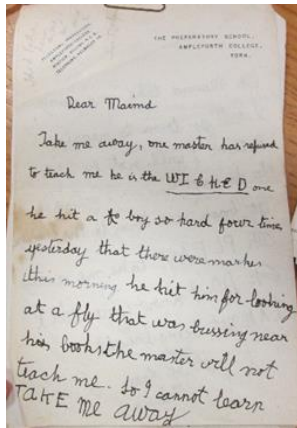 THE PREPARATORY SCHOOL,
AMPLEFORTH COLLEGE,
YORK.
Dear Maimd
Take me away, one master has refused
to teach me he is the WICKED one
he hit a boy so hard four times
yesterday that there were marks
this morning he hit him for looking
at a fly that was bussing near
his books the master will not
teach me. So I cannot learn
TAKE me away